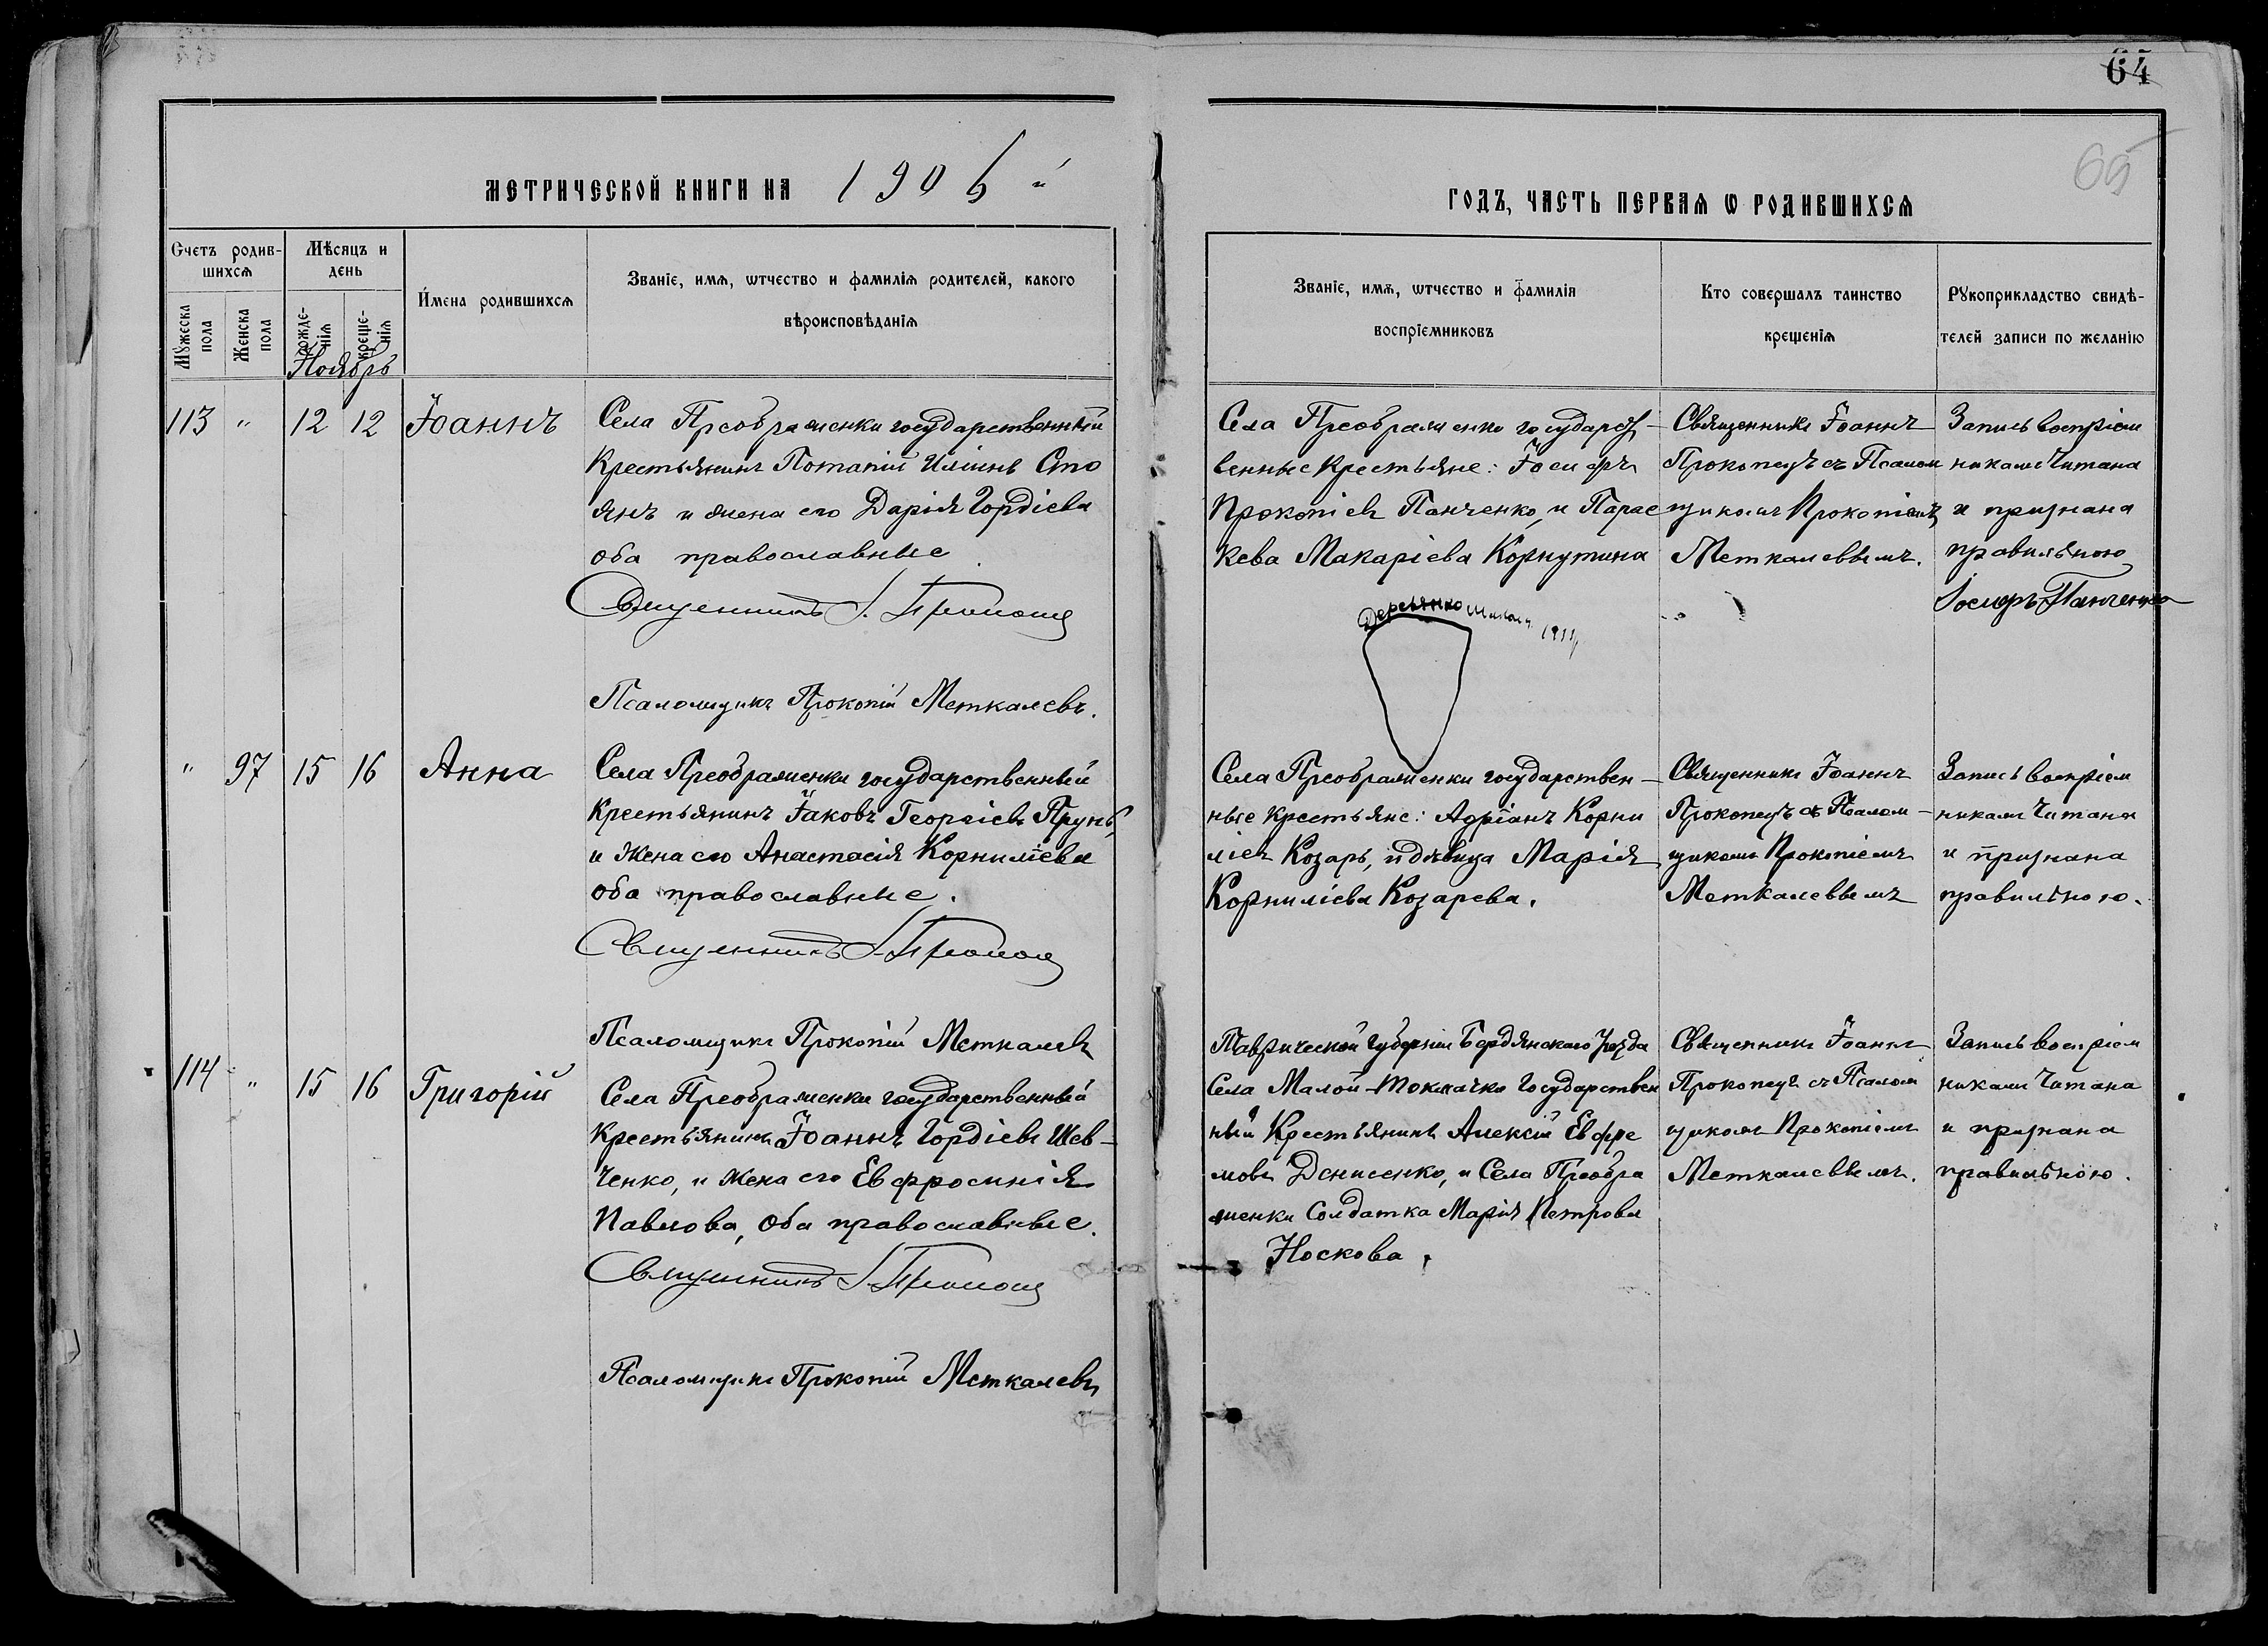 64
65
МЕТРИЧЕСКОЙ КНИГИ НА 1906 й
ГОДЪ, ЧАСТЬ ПЕРВАЯ Ѡ РОДИВШИХСЯ
Счетъ родив-
шихся
Мѣсяцъ и
день
Мужеска
пола
Женска
пола
рожде-
нія
креще-
нія
Имена родившихся
Званіе, имя, ѡтчество и фамилія родителей, какого
вѣроисповѣданія
Званіе, имя, ѡтчество и фамилія
воспріемниковъ
Кто совершалъ таинство
крещенія
Рукоприкладство свидѣ-
телей записи по желанію
Ноябрь
113 " 12 12 Іоаннъ
Села Преображенки государственный
крестьянинъ Потапій Иліинъ Сто
янъ и жена его Дарія Гордіева
оба православные
Священникъ І. Прокопец
Псаломщикъ Прокопій Меткалевъ.
Села Преображенки государст-
венные крестьяне: Іосифъ
Прокопіевъ Панченко, и Парас
кева Макаріева Корнутина
Деревянко
Священникъ Іоаннъ
Прокопецъ съ Псалом
щикомъ Прокопіемъ
Меткалевымъ.
Запись воспріем
никами читана
и признана
правильною
Іосифъ Панченко
" 97 15 16 Анна
Села Преображенки государственный
крестьянинъ Іаковъ Георгіевъ Прунь,
и жена его Анастасія Корниліева
оба православные.
Священникъ І. Прокопец
Псаломщикъ Прокопій Меткалевъ
Села Преображенки государствен-
ные крестьяне: Адріанъ Корни
ліевъ Козарь, и дѣвица Марія
Корниліева Козарева.
Священникъ Іоаннъ
Прокопецъ съ Псалом-
щикомъ Прокопіемъ
Меткалевымъ
Запись воспріем
никами читана
и признана
правильною.
114 " 15 16 Григорій
Села Преображенки государственный
крестьянинъ Іоаннъ Гордіевъ Шев-
ченко, и жена его Евфросинія
Павлова, оба православные.
Священникъ І. Прокопец
Псаломщикъ Прокопій Меткалевъ
Таврической Губерніи Бердянскаго Уѣзда
Села Малой-Токмачки Государствен
ный Крестьянинъ Алексій Евфре
мовъ Денисенко, и Села Преобра
женки Солдатка Марія Петрова
Носкова.
Священникъ Іоаннъ
Прокопецъ съ Псалом
щикомъ Прокопіемъ
Меткалевымъ.
Запись воспріем
никами читана
и признана
правильною.